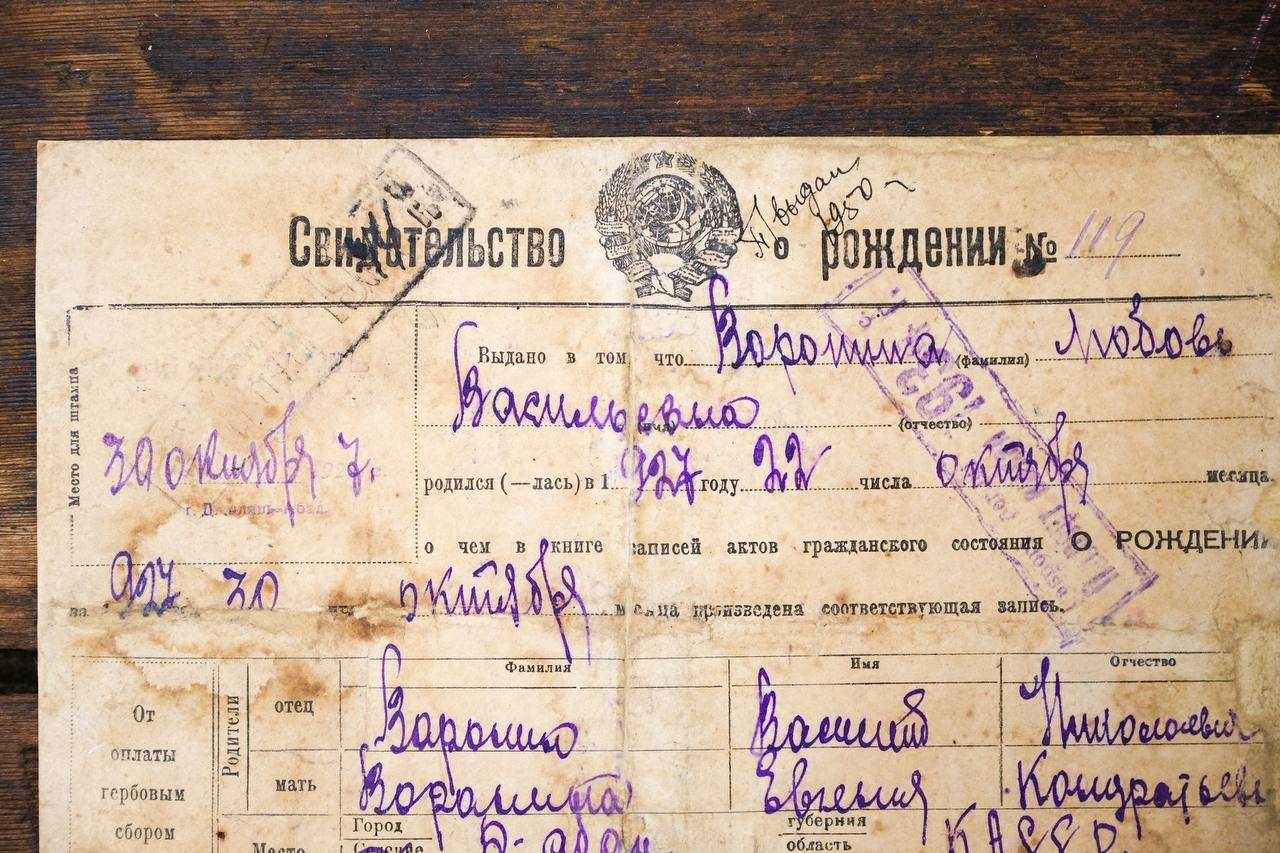 Свидетельство о рождении № 119
П/выдан
1950
Место для штампа
Выдано в том, что Воронина (фамилия) Любовь
Васильевна (имя) (отчество)
родился (—лась) в 1 927 году 22 числа октября месяца
30 октября 7.
о чем в книге записей актов гражданского состояния О РОЖДЕНИИ
за 927 30 октября месяца произведена соответствующая запись.
Фамилия Имя Отчество
От оплаты гербовым сбором
Родители
отец Василий
мать Евгения
Город
Селение
губерния
область
Место
КАССР